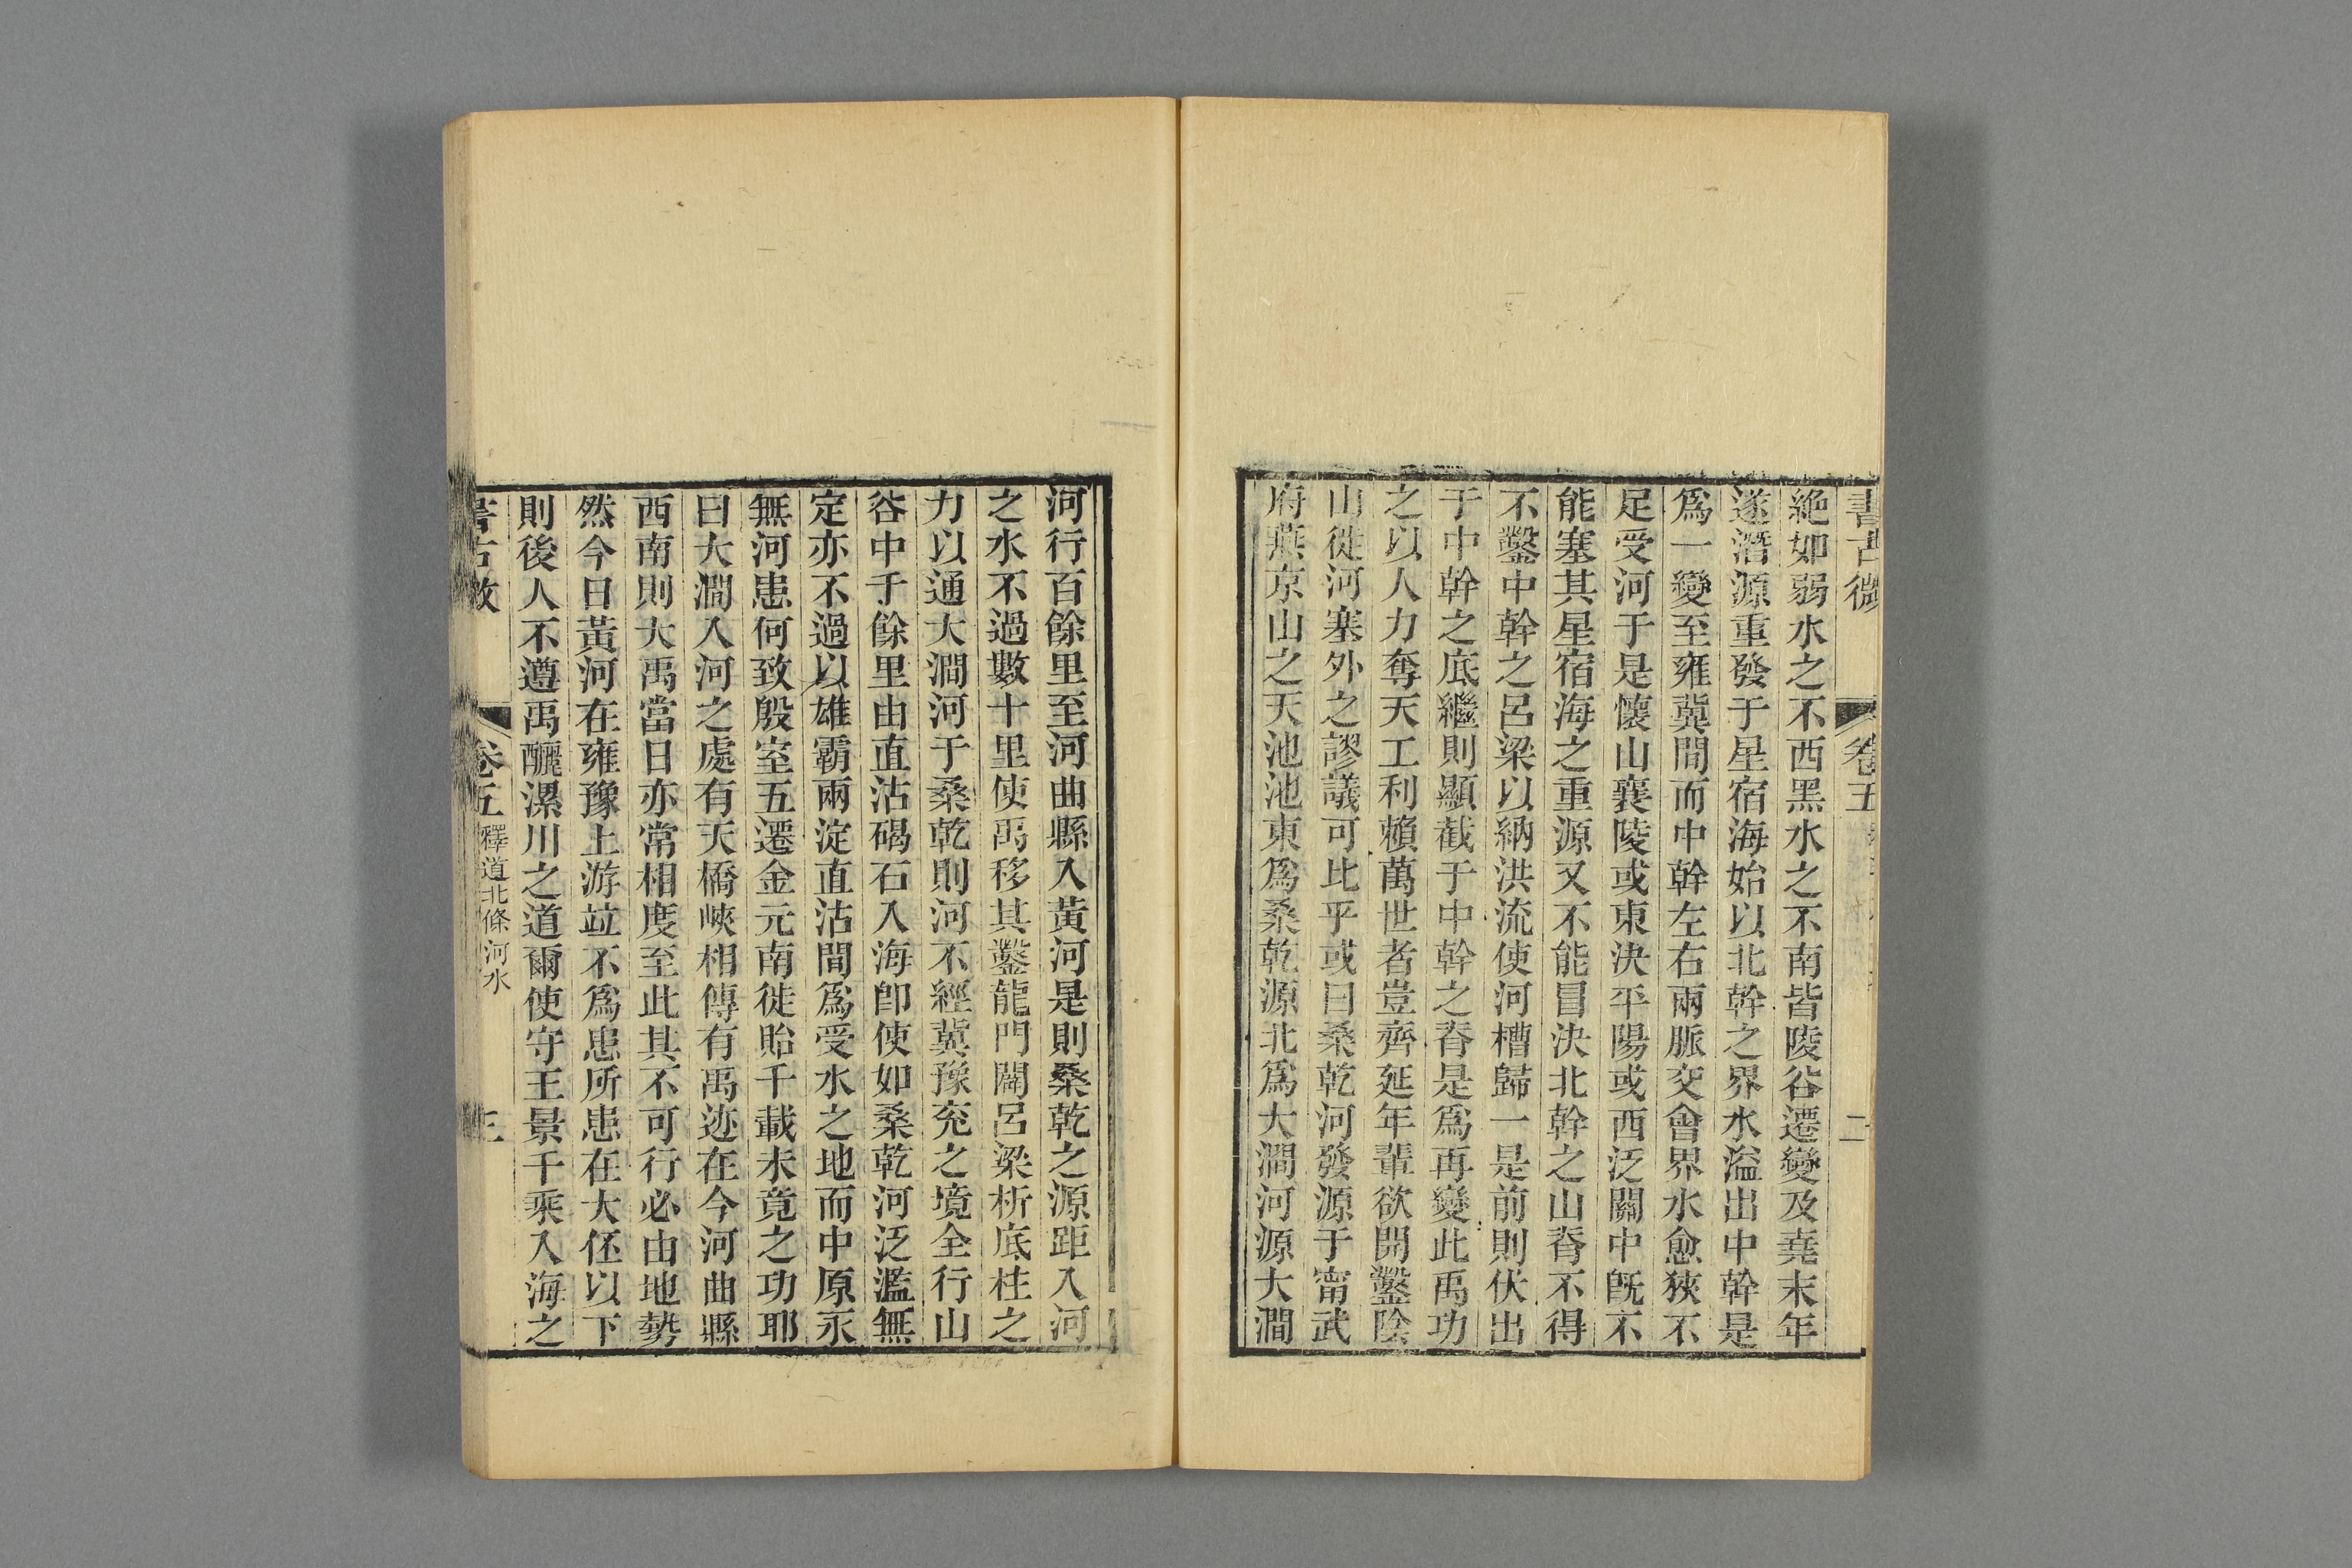 書古微 卷五 二
絶如弱水之不西黑水之不南皆陵谷遷變及堯末年
遂潛源重發于星宿海始以北幹之界水溢出中幹是
爲一變至雍冀間而中幹左右兩脈交會界水愈狹不
足受河于是懷山襄陵或東決平陽或西泛關中旣不
能塞其星宿海之重源又不能冒決北幹之山脊不得
不鑿中幹之呂梁以納洪流使河槽歸一是前則伏出
于中幹之底繼則顯截于中幹之脊是爲再變此禹功
之以人力奪天工利賴萬世者豈齊延年輩欲開鑿陰
山徙河塞外之謬議可比乎或曰桑乾河發源于甯武
府燕京山之天池池東爲桑乾源北爲大澗河源大澗
河行百餘里至河曲縣入黃河是則桑乾之源距入河
之水不過數十里使禹移其鑿龍門闢呂梁析底柱之
力以通大澗河于桑乾則河不經冀豫兖之境全行山
谷中千餘里由直沽碣石入海卽使如桑乾河泛濫無
定亦不過以雄霸兩淀直沽間爲受水之地而中原永
無河患何致殷室五遷金元南徙貽千載未竟之功耶
曰大澗入河之處有天橋峽相傳有禹迹在今河曲縣
西南則大禹當日亦常相度至此其不可行必由地勢
然今日黃河在雍豫上游竝不爲患所患在大伾以下
則後人不遵禹釃漯川之道爾使守王景千乘入海之
書古微 卷五 釋道北條河水 三